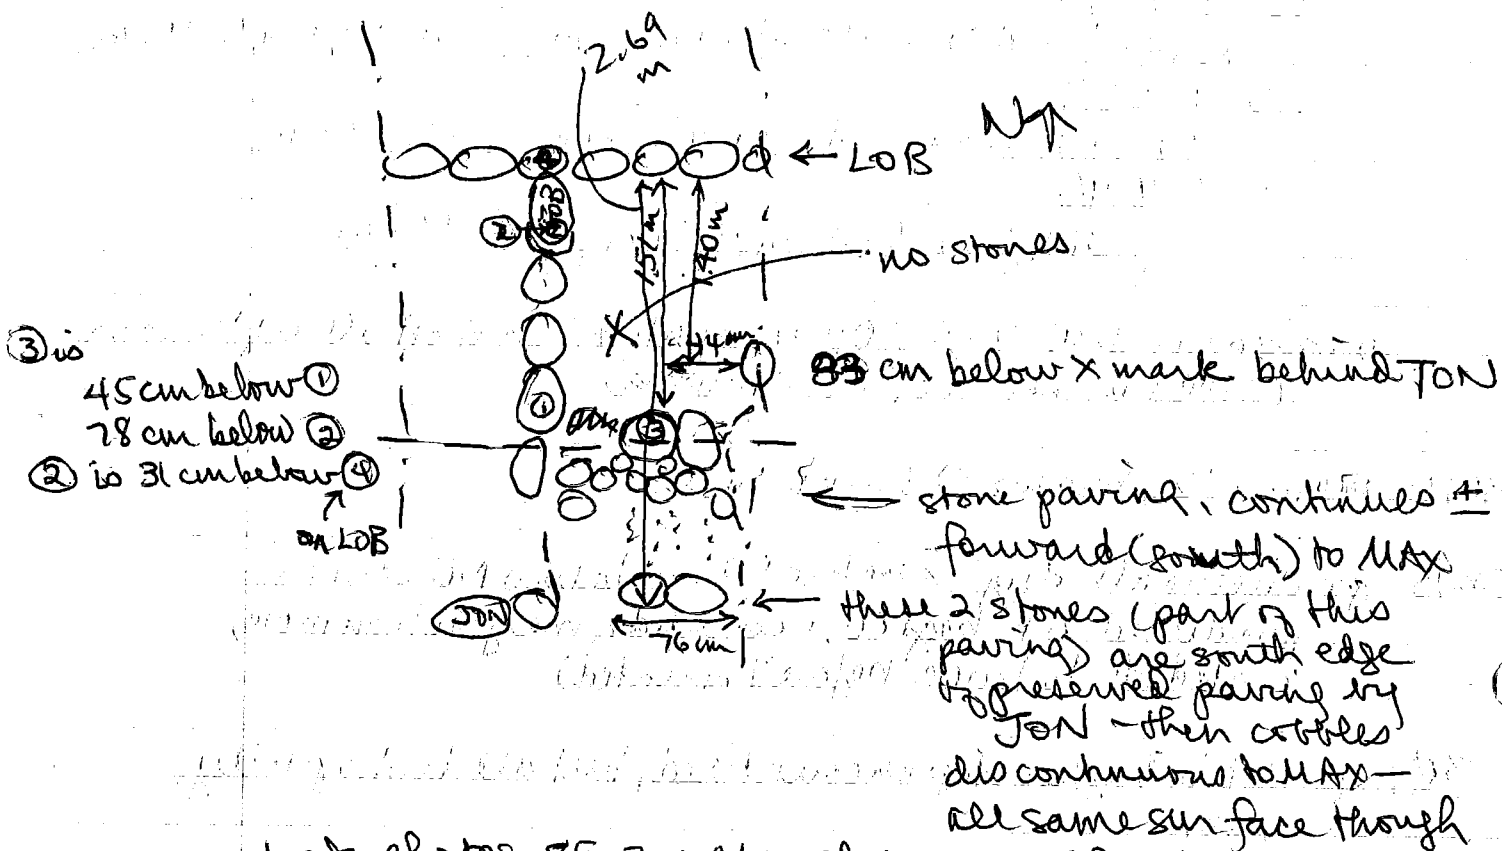 2.69
m
N
← LOB
②
1.51 m
1.40 m
no stones
③ is
45 cm below ①
78 cm below ②
② is 31 cm below ④
↑
on LOB
44 cm
83 cm below X mark behind JON
X
①
③
← stone paving, continues ±
forward (south) to MAX
JON
76 cm
← these 2 stones (part of this
paving) are south edge
of preserved paving by
JON - then cobbles
discontinuous to MAX—
all same surface though